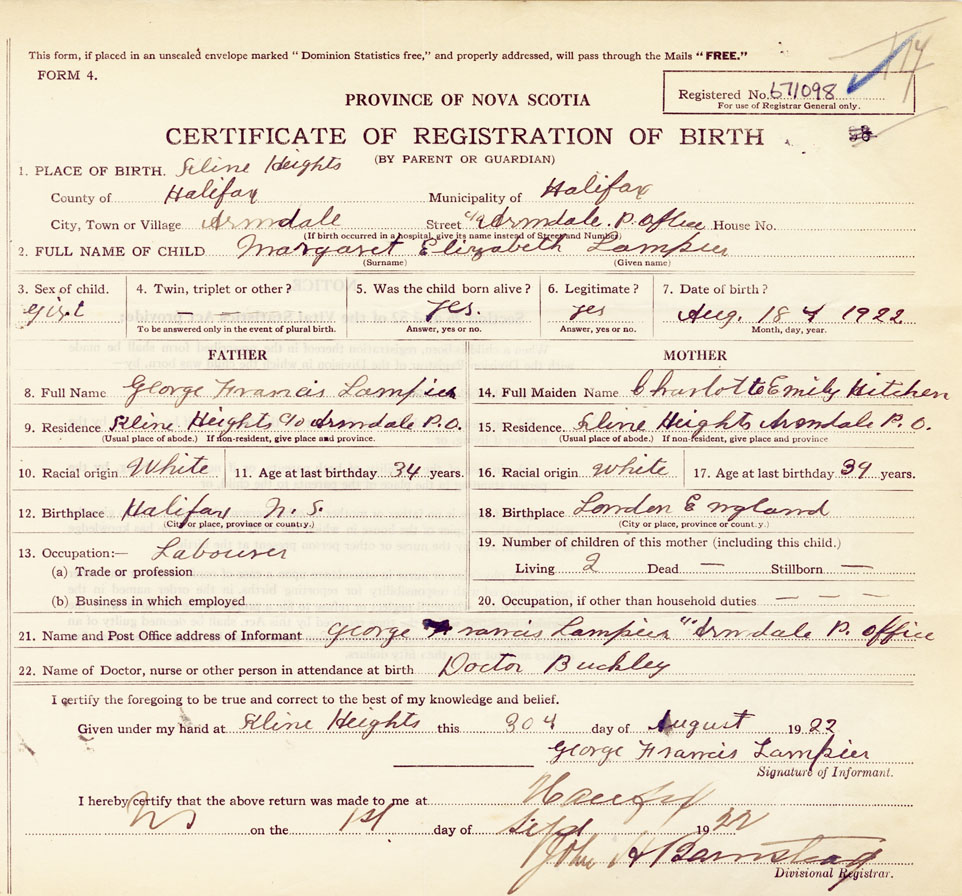 This form, if placed in an unsealed envelope marked " Dominion Statistics free," and properly addressed, will pass through the Mails "FREE."
FORM 4.
Registered No. 671098
For use of Registrar General only.
PROVINCE OF NOVA SCOTIA
CERTIFICATE OF REGISTRATION OF BIRTH
(BY PARENT OR GUARDIAN)
1. PLACE OF BIRTH. Kline Heights
County of Halifax Municipality of Halifax
City, Town or Village Armdale Street c/o Armdale. P. Office House No.
(If birth occurred in a hospital, give its name instead of Street and Number)
2. FULL NAME OF CHILD Margaret Elizabeth Lampier
(Surname) (Given name)
3. Sex of child. 4. Twin, triplet or other? 5. Was the child born alive? 6. Legitimate? 7. Date of birth?
girl — — yes. yes Aug. 18 1922
To be answered only in the event of plural birth. Answer, yes or no. Answer, yes or no. Month, day, year.
FATHER MOTHER
8. Full Name George Francis Lampier 14. Full Maiden Name Charlotte Emily Hitchen
9. Residence Kline Heights c/o Armdale P.O. 15. Residence. Kline Heights Armdale P. O.
(Usual place of abode.) If non-resident, give place and province. (Usual place of abode.) If non-resident, give place and province
10. Racial origin White 11. Age at last birthday 34 years. 16. Racial origin White 17. Age at last birthday 39 years.
12. Birthplace Halifax N. S. 18. Birthplace London England
(City or place, province or country.) (City or place, province or country.)
13. Occupation:— Labourer 19. Number of children of this mother (including this child.)
(a) Trade or profession Living 2 Dead — Stillborn —
(b) Business in which employed 20. Occupation, if other than household duties — — —
21. Name and Post Office address of Informant George Francis Lampier Armdale P. Office
22. Name of Doctor, nurse or other person in attendance at birth Doctor Buckley
I certify the foregoing to be true and correct to the best of my knowledge and belief.
Given under my hand at Kline Heights this 30 day of August 1922
George Francis Lampier
Signature of Informant.
I hereby certify that the above return was made to me at Halifax
NS on the 1st day of Sept 1922
John A Barnstead
Divisional Registrar.